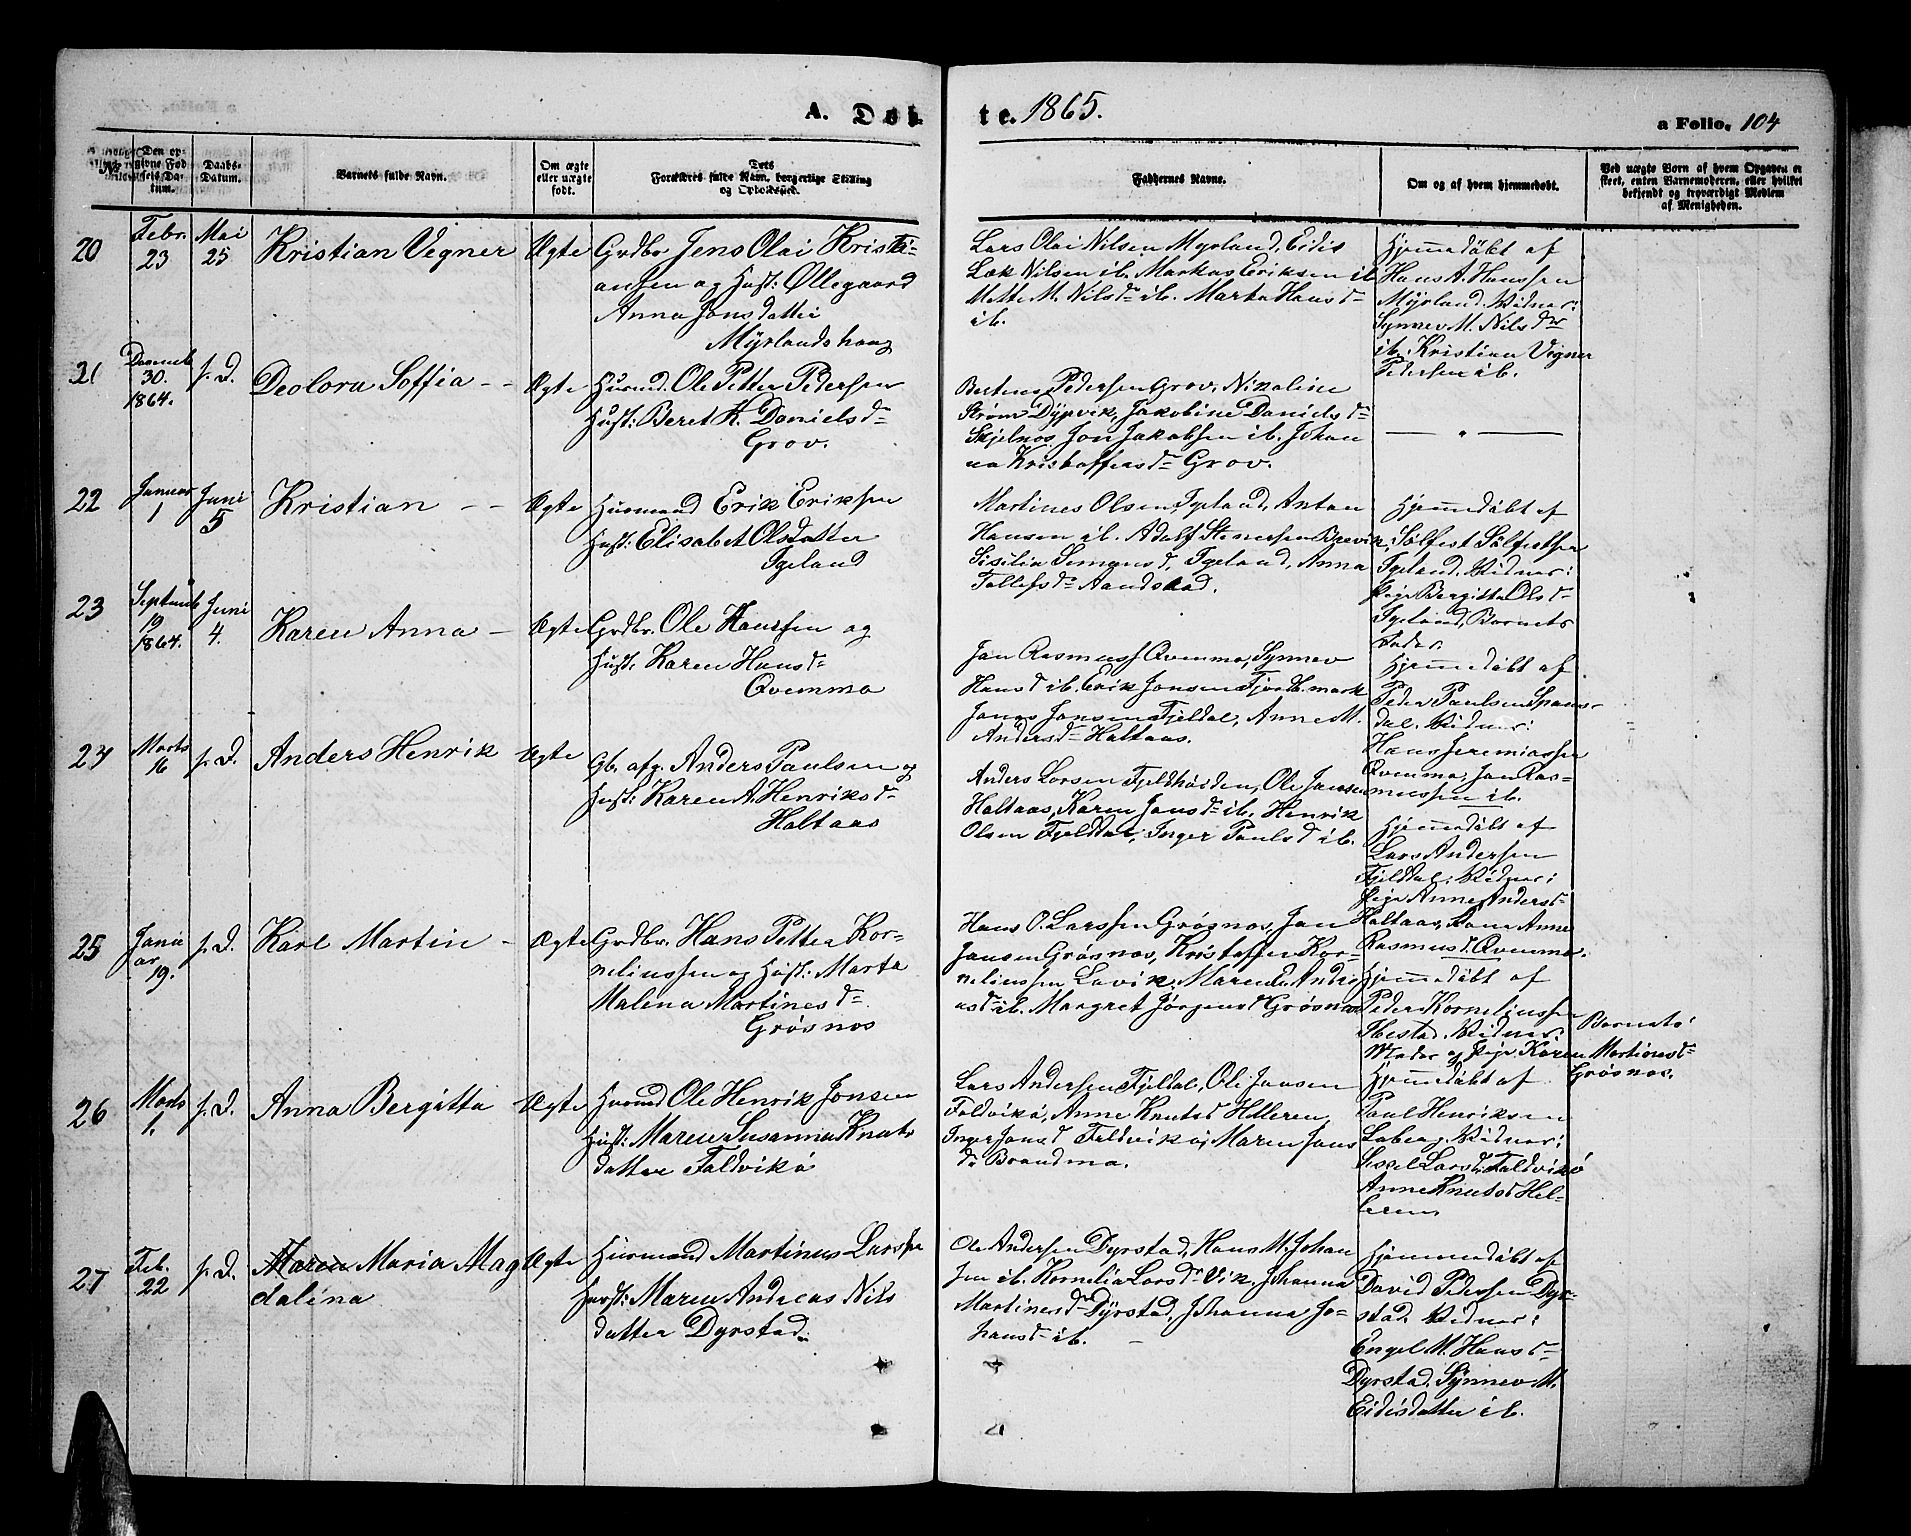 A. Døb
te. 1865.
a Folio. 104
No
Den op-
givne Fød-
sels Da-
tum.
Daabs-
Datum.
Barnets fulde Navn.
Om ægte
eller uægte
født.
Dets
Forældres fulde Navn, borgerlige Stilling
og Opholdssted.
Faddernes Navne.
Om og af hvem hjemmedøbt.
Ved uægte Børn af hvem Opgaven er
skeet, enten Barnemoderen, eller hvilket
bekjendt og troværdigt Medlem
af Menigheden.
20
Febr.
23
Mai
25
Kristian Vegner
Ægte
Grdbr. Jens Olai Kristi-
ansen og Hust: Øllegaard
Anna Jonsdatter
Myrlandshaug
Lars Olai Nilsen Myrland, Eidis
Læk Nilsen ib. Markus Eriksen ib
Mette M. Nilsd. ib. Marta Hansd.
ib.
Hjemmedøbt af
Hans A. Hanssen
Myrland. Vidner:
Synnev M. Nilsdr
ib. Kristian Vegner
Pedersen ib.
21
Decemb
30.
1864.
s. D.
Deolora Soffia - -
Ægte
Husmd. Ole Petter Pedersen
Hust: Beret K. Danielsd.
Grov.
Pedersen Grov, Nikoline
Strøm Dypvik, Jakobine Danielsd.
Skjelnes, Jon Jakobsen ib. Johan
na Kristoffersd. Grov.
— " —
22
Januar
1
Juni
5
Kristian - -
Ægte
Husmand Erik Eriksen
Hust: Elisabet Olsdatter
Tgeland
Martines Olsen Tgeland, Anton
Hansen ib. Adolf Stenersen Brevik,
Sisilia Simonsd. Tgeland, Anna
Tollefsd. Aandstad.
Hjemmedøbt af
Sølfest Sølfestsen
Tgeland. Vidner:
Pige Bergitta Olsd.
Tgeland, Barnets
Fader
23
Septemb
19
1864.
Juni
4.
Karen Anna -
Ægte
Grdbr. Ole Hanssen og
Hust. Karen Hansd.
Qvemmo
Jon Rasmuss Qvemmo, Synnev
Hansd. ib. Erik Jonsen Fjordbmark
Jonas Jonsen Fjeldal, Anne M.
Andersd. Haltaas.
Hjemmedøbt af
Peder Paulsen Spans-
dal. Vidner:
Hans Jeremiassen
Qvemmo, Jon Ras-
mussen ib.
24
Marts
16
s. D.
Anders Henrik
Ægte
Gb. afg. Anders Paulsen og
Hust: Karen A. Henriksd.
Haltaas
Anders Larsen Fjeldhøiden, Ole Jonsen
Haltaas, Karen Jonsd. ib. Henrik
Olsen Fjeldal, Inger Paulsd. ib.
Hjemmedøbt af
Lars Andersen
Fjeldal. Vidner:
Pige Anne Andersd.
Haltaas, Kone Anne
Rasmusd. Qvemmo.
25
Janu
ar
19.
s. D.
Karl Martin -
Ægte
Grdbr. Hans Petter Kor-
neliussen og Hust: Marta
Malena Martinesd.
Grøsnes
Hans O. Larssen Grøsnes, Jon
Jonsen Grøsnes, Kristoffer Kor-
neliussen Lavik, Maren Andre
asd. ib. Margret Jørgensd. Grøsnes
Hjemmedøbt af
Peder Korneliussen
Ibestad. Vidner:
Moder og Pige Karen
Barnets
Martinesd.
Grøsnes.
26
Marts
1.
s. D.
Anna Bergitta
Ægte
Husmd Ole Henrik Jonsen
Hust: Maren Susanna Knuts
datter Foldvikø
Lars Andersen Fjeldal, Ole Jonsen
Foldvikø, Anne Knutsd Helleren
Inger Jonsd Foldvikø, Maren Jons
d. Brandmo.
Hjemmedøbt af
Paul Henriksen
Laberg. Vidner:
Sissel Larsd. Foldvikø
Anne Knutsd Hel-
leren
27
Feb.
22
s. D.
Maren Maria Mag
dalina
Ægte
Husmand Martinus Larssen
Hust: Maren Andreas Nils
datter Dyrstad.
Ole Andersen Dyrstad, Hans M. Johan
sen ib. Kornelia Larsd. Vik, Johanna
Martinesd. Dyrstad, Johanna Jo-
hansd. ib. -
Hjemmedøbt af
David Pedersen Dyr-
stad. Vidner:
Engel M. Hansd.
Dyrstad, Synnev M.
Eidisdatter ib.